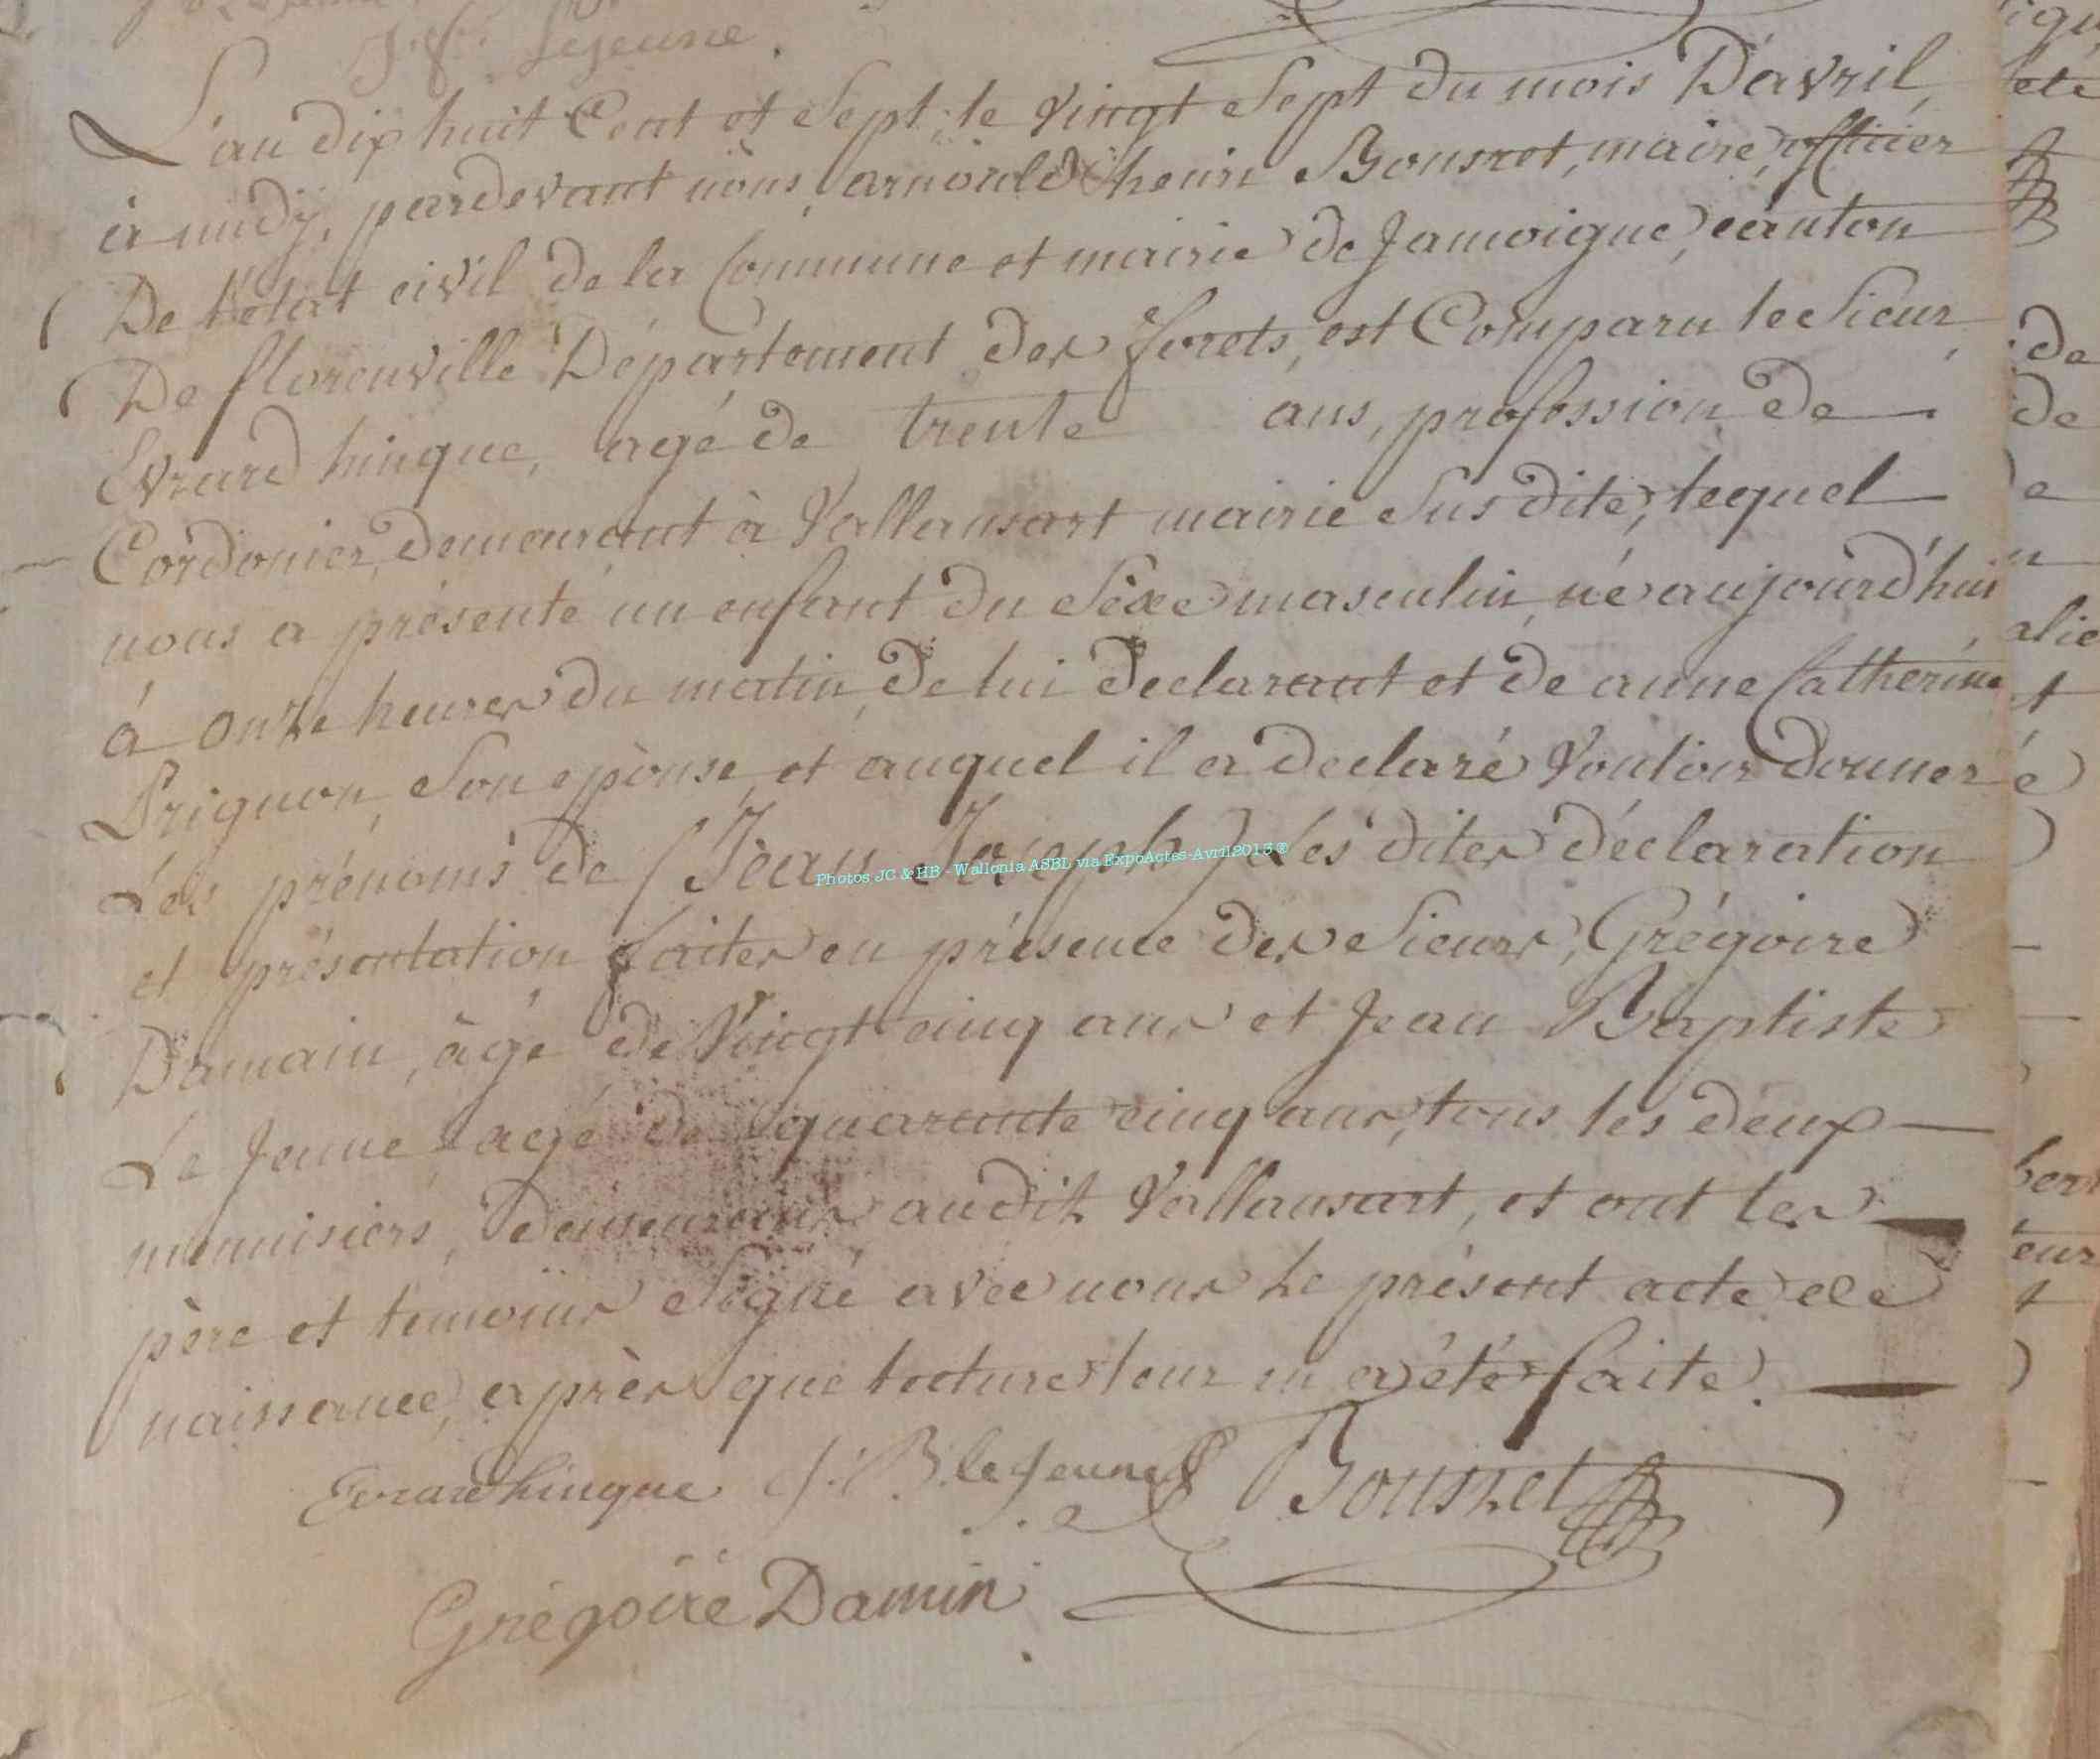 J. f. Lejeune.
L'an dix huit Cent et Sept, le vingt Sept du mois D'avril,
à midÿ, pardevant nous, arnould henri Bousret, maire, officier
De l'etat civil de la Commune et mairie de Jamoigne, canton
De florenville Département des forets, est Comparu le Sieur
Evrard hinque, agé de trente ans, profession de
Cordonier, demeurant à Vallansart mairie Sus dite, lequel
nous a présenté un enfant du Séxe masculin, né aujourd'hui
à onze heures du matin, De lui Declarant et de anne Catherine
Prignon, Son epouse, et auquel il a Declaré Vouloir Donner
Les prénoms de (Jean Joseph) Les dites déclaration
et présentation faites en présence des Sieurs, Grégoire
Damain, âgé de Vingt cinq ans et Jean Baptiste
Le Jeune agé de quarante cinq ans, tous les deux
menuisiers, demeurans audit Vallansart, et ont les
père et temoins Signé avec nous le présent acte de
naissance, après que lecture leur en a été faite.
Evrard hinque J: B. le Jeune Bousret
Grégoire Damin
Photos JC & HB - Wallonia ASBL via ExpoActes-Avril2013®